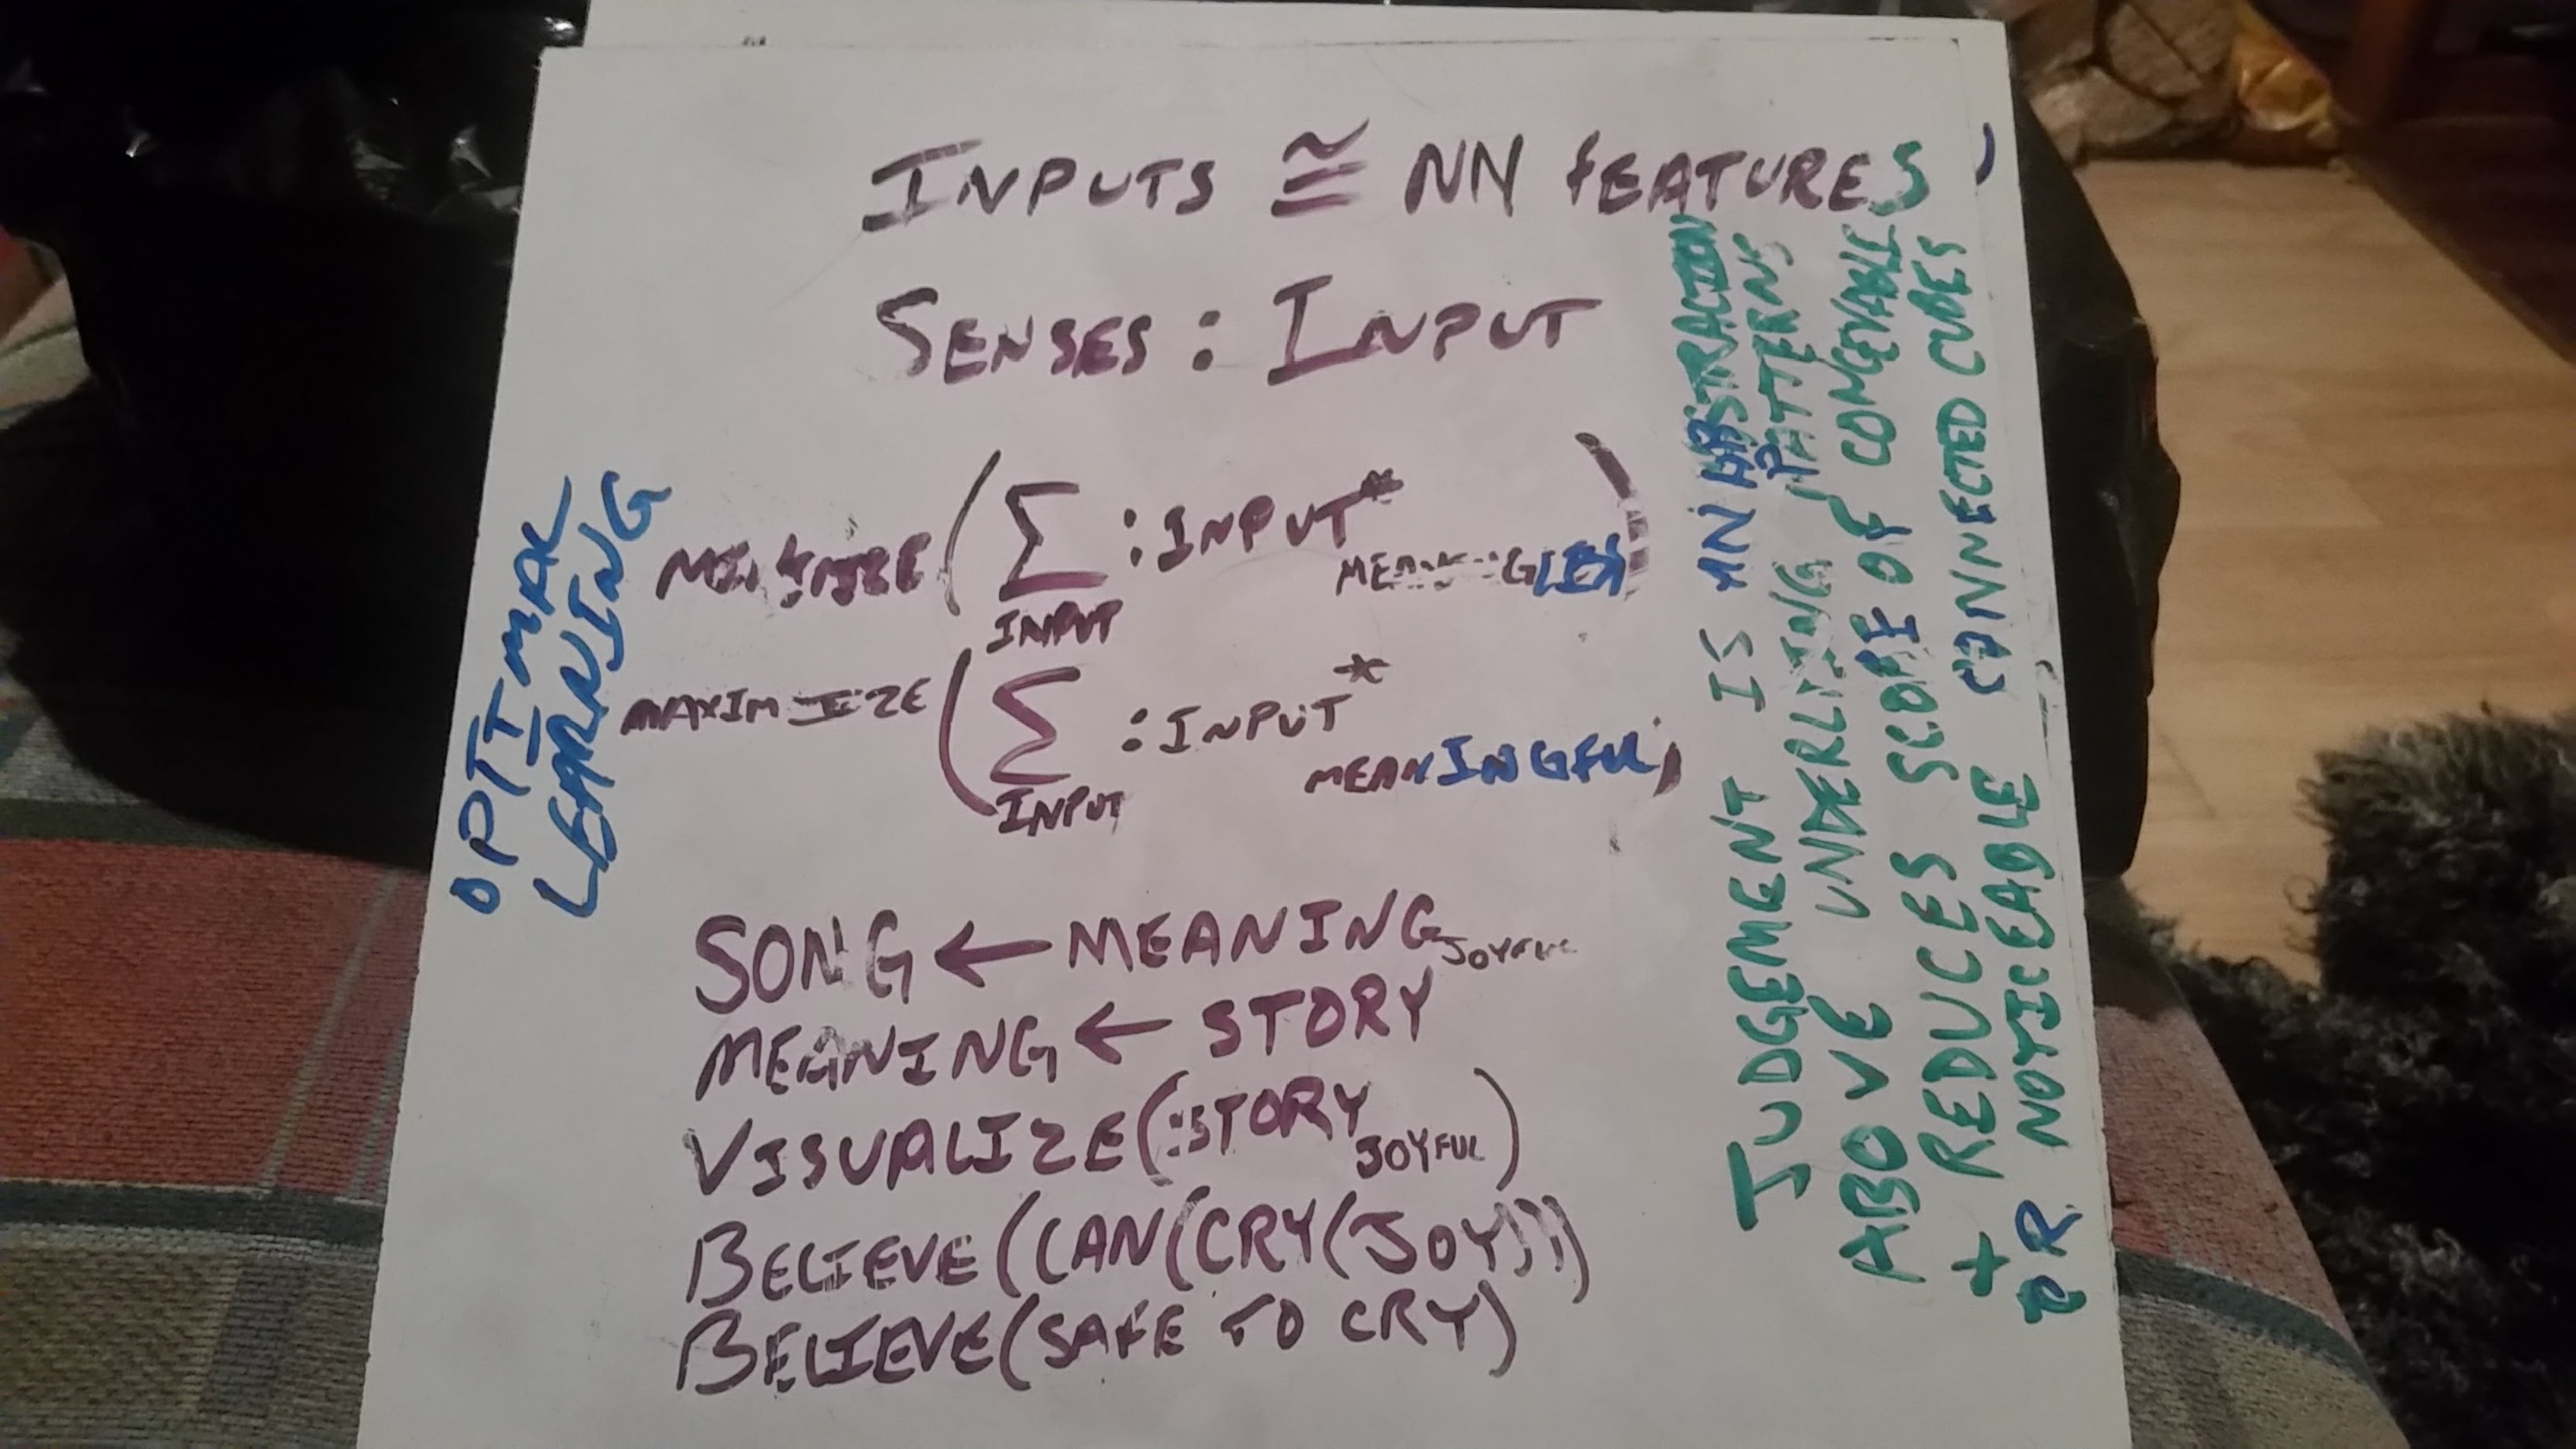 INPUTS ≅ NN FEATURES
SENSES : INPUT
OPTIMAL
LEARNING
MINIMIZE ( Σ INPUT : INPUT* MEANINGLESS )
MAXIMIZE ( Σ INPUT : INPUT* MEANINGFUL )
SONG ← MEANING JOYFUL
MEANING ← STORY
VISUALIZE (:STORY JOYFUL)
BELIEVE (CAN(CRY(JOY)))
BELIEVE (SAFE TO CRY)
JUDGEMENT IS AN ABSTRACTION
ABOVE UNDERLIING PATTERNS
+ REDUCES SCOPE OF CONCEVABLE
OR NOTICEABLE CONNECTED CUBES